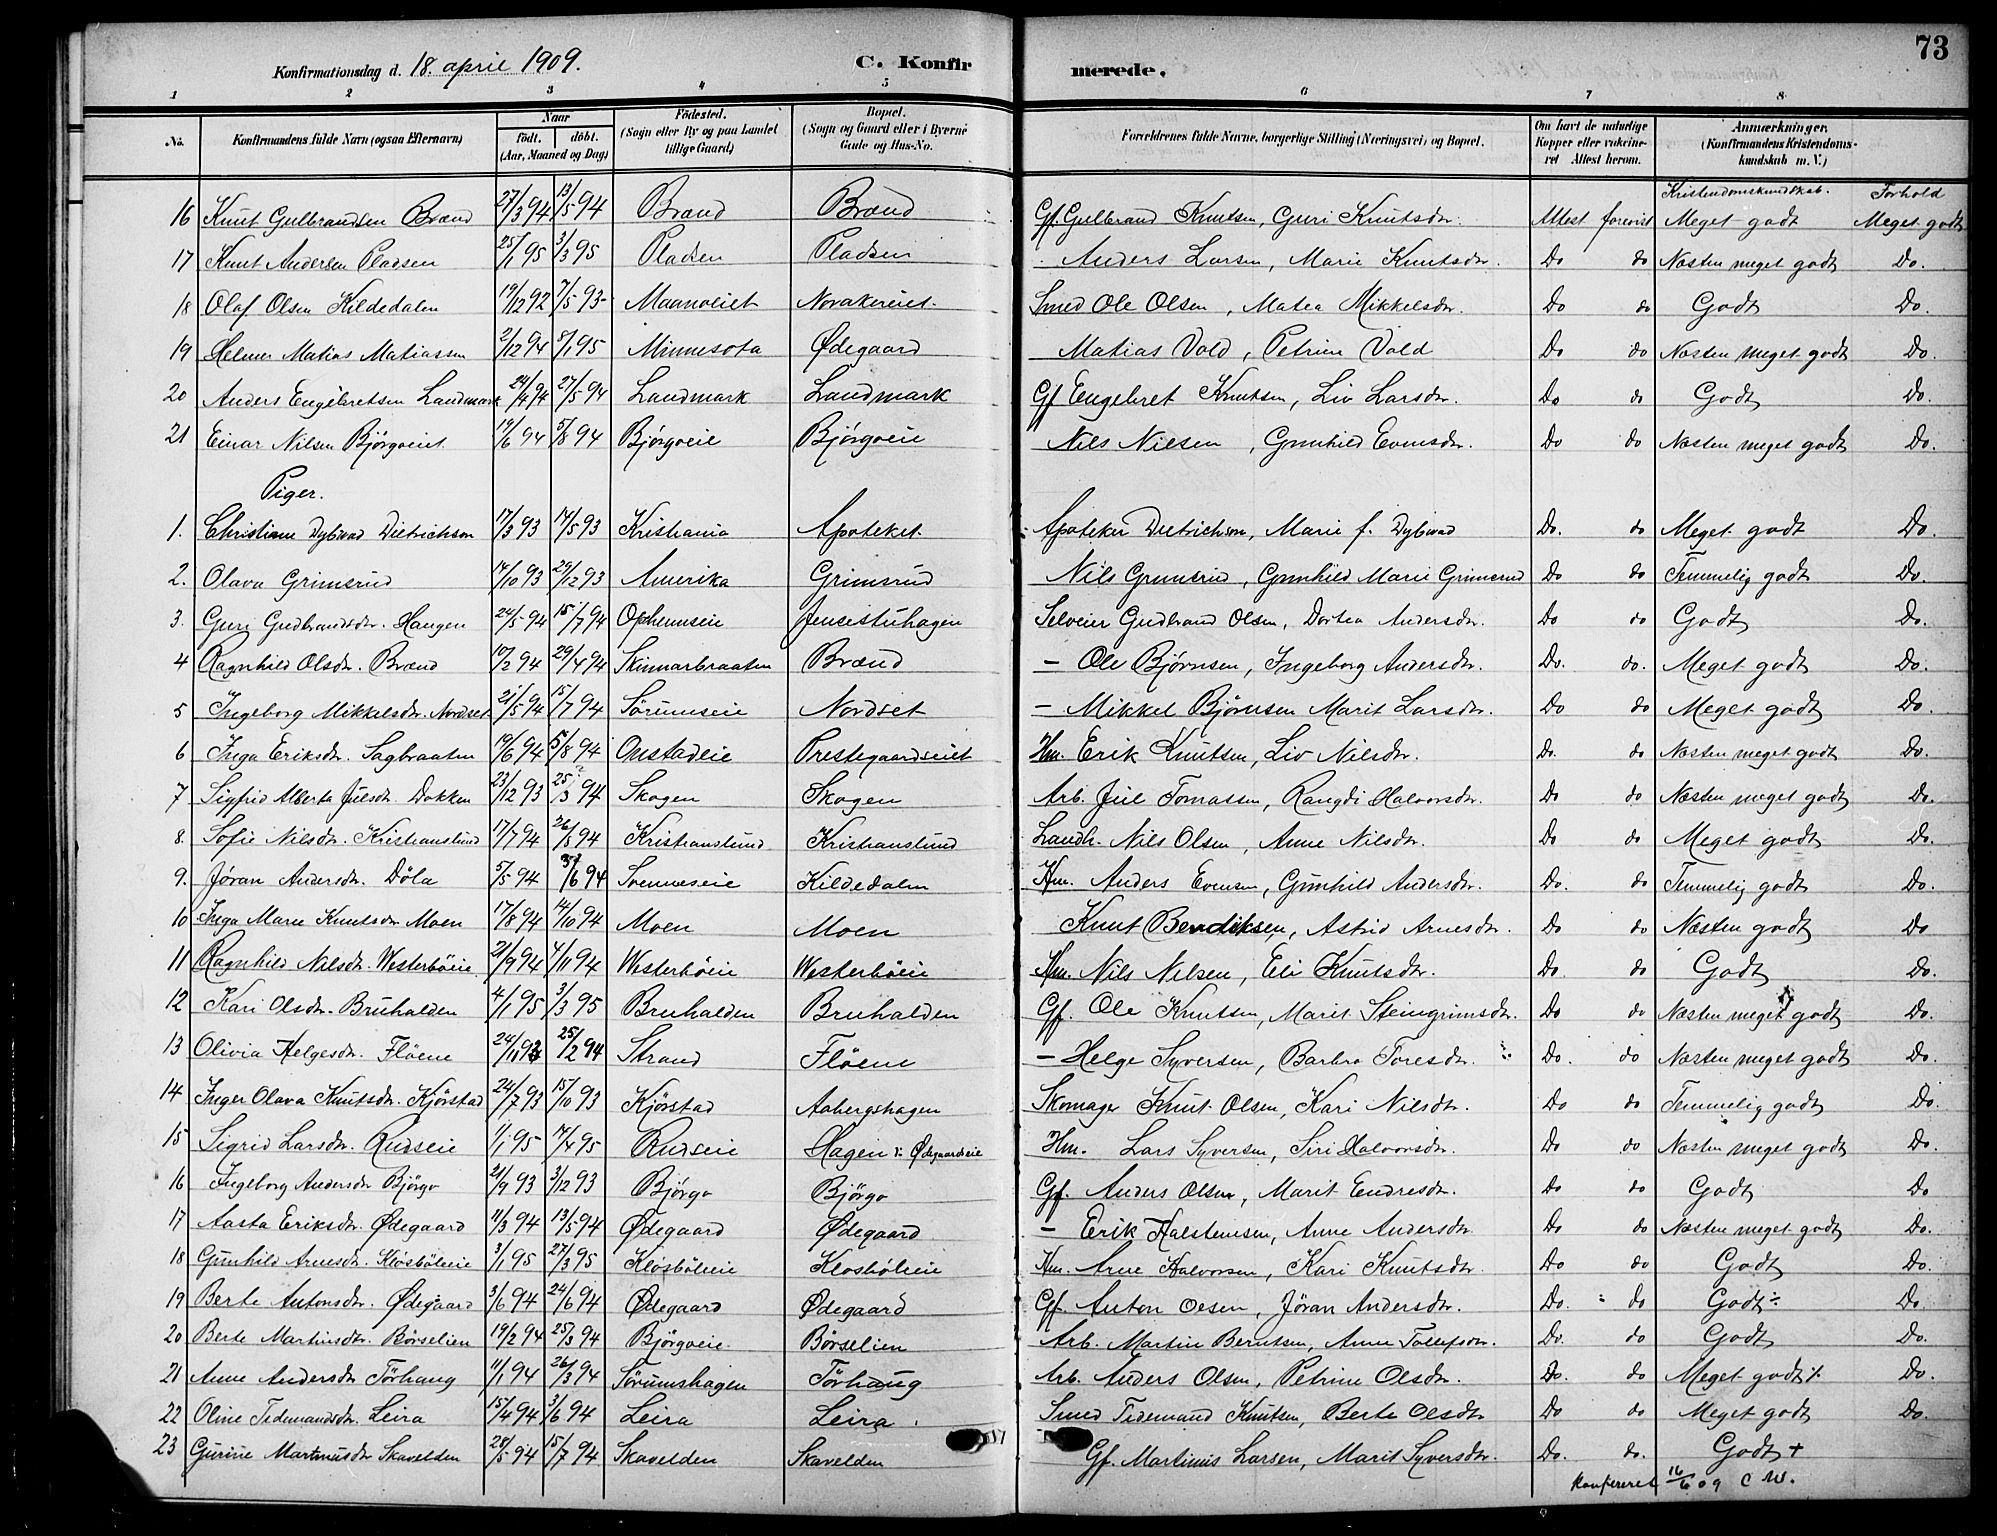 73
Konfirmationsdag d. 18. april 1909. C. Konfirmerede.
1 2 3 4 5 6 7 8
No. Konfirmandens fulde Navn (ogsaa Efternavn) Naar født. døbt. (Aar, Maaned og Dag) Fødested. (Sogn eller By og paa Landet tillige Gaard) Bopæl. (Sogn og Gaard eller i Byerne Gade og Hus-No. Forældrenes fulde Navne, borgerlige Stilling (Næringsvei) og Bopæl. Om havt de naturlige Kopper eller vakcineret Attest herom. Anmærkninger. (Konfirmandens Kristendomskundskab m. V.)
Kristendomskundskab. Forhold
16 Knut Gulbrandsen Brænd 27/3 94 13/5 94 Brænd Brænd Gf. Gulbrand Knutsen, Guri Knutsdr. Attest forevist Meget godt Meget godt
17 Knut Andersen Pladsen 25/1 95 3/3 95 Pladsen Pladsen Anders Larsen, Marie Knutsdr. Do do Næsten meget godt Do.
18 Olaf Olsen Kildedalen 19/12 92 7/5 93 Maanoeiet Norakereiet Smed Ole Olsen, Matea Mikkelsdr. Do do Godt Do.
19 Helmer Matias Matiassen 2/12 94 5/1 95 Minnesota Ødegaard Matias Vold, Petrine Vold Do do Næsten meget godt Do.
20 Anders Engebretsen Landmark 24/4 94 27/5 94 Landmark Landmark Gf Engebret Knutsen, Liv Larsdr. Do do Godt Do.
21 Einar Nilsen Bjørgoeiet 19/6 94 5/8 94 Bjørgoeie Bjørgoeie Nils Nielsen, Gunhild Evensdr. Do do Næsten meget godt Do.
Piger.
1. Christiane Dybwad Dietrichson 17/3 93 14/5 93 Kristiania Apoteket. Apoteker Dietrichson, Marie f. Dybwad Do. do Meget godt Do
2. Olava Grimsrud 14/10 93 29/12 93 Amerika Grimsrud Nils Grimsrud, Gunhild Marie Grimsrud Do do Temmelig godt Do.
3. Guri Gudbrandsdr. Haugen 24/5 94 15/7 94 Ophemseie Jensestuhagen Selveier Gudbrand Olsen, Dortea Andersdr. Do do Godt Do.
4 Ragnhild Olsdr. Brænd 10/2 94 29/4 94 Skinnarbraaten Brænd - Ole Bjørnsen, Ingeborg Andersdr. Do. do. Meget godt Do.
5 Ingeborg Mikkelsdr. Nordset 21/5 94 15/7 94 Sørumseie Nordset - Mikkel Bjørnsen Marit Larsdr. Do do Meget godt Do.
6 Inga Eriksdr. Sagbraaten 19/6 94 5/8 94 Onstadeie Prestegaardseiet Hm. Erik Knutsen, Liv Nilsdr. Do. do Næsten meget godt Do.
7 Sigfrid Alberta Julsdr. Dokken 23/12 93 25/3 94 Skogen Skogen Arb. Jul Tomassen, Rangdi Halvorsdr. Do do Næsten meget godt Do.
8. Sofie Nilsdr. Kristianslund 17/7 94 26/8 94 Kristianslund Kristianslund Landh. Nils Olsen, Anne Nilsdr. Do do Meget godt Do.
9. Jøran Andersdr. Døla 5/5 94 3/6 94 Svenneseie Kildedalen Hm. Anders Evensen, Gunhild Andersdr. Do. do Temmelig godt Do.
10 Inga Marie Knutsdr Moen 17/8 94 14/10 94 Moen Moen Knut Bendiksen, Astrid Arnesdr. Do do Næsten godt Do
11 Ragnhild Nilsdr. Westerbøeie 21/9 94 4/11 94 Westerbøeie Westerbøeie Hm. Nils Nilsen, Eli Knutsdr. Do. do Godt Do.
12 Kari Olsdr. Bruhalden 4/1 95 3/3 95 Bruhalden Bruhalden Gf. Ole Knutsen, Marit Steingrimsdr. Do do Næsten meget godt Do.
13 Olivia Helgesdr. Fløene 24/11 93 25/2 94 Strand Fløene - Helge Syversen, Barbro Toresdr. Do. do Næsten meget godt Do.
14 Inger Olava Knutsdr. Kjørstad 24/7 93 15/10 93 Kjørstad Aabergshagen Skomager Knut Olsen, Kari Nilsdr. Do do Temmelig godt Do.
15 Sigrid Larsdr. Rudseie 1/1 95 14/4 95 Rudseie Hagen v. Ødegaardseie Hm. Lars Syversen, Siri Halvorsdr. Do do Næsten meget godt Do.
16 Ingeborg Andersdr Bjørgo 21/9 93 3/12 93 Bjørgo Bjørgo Gf. Anders Olsen, Marit Endresdr. Do do Godt Do
17 Aasta Eriksdr. Ødegaard 11/3 94 13/5 94 Ødegaard Ødegaard - Erik Halstensen, Anne Andersdr. Do do Næsten meget godt Do.
18 Gunhild Arnesdr. Kløsbøleie 3/1 95 27/3 95 Kløsbøleie Kløsbøleie Hm. Arne Halvorsen, Kari Knutsdr. Do do Godt Do.
19 Berte Antonsdr. Ødegaard 3/6 94 24/6 94 Ødegaard Ødegaard Gf. Anton Olsen, Jøran Andersdr. Do. do Godt ÷ Do
20 Berte Martinsdr. Børselien 19/2 94 25/3 94 Bjørgoeie Børselien Arb. Martin Berntsen, Anne Tollefsdr. Do. do Godt Do.
21 Anne Andersdr Tørhaug 11/1 94 26/3 94 Sørumshagen Tørhaug Arb. Anders Olsen, Petrine Olsdr. Do. do Meget godt ٪ Do.
22 Oline Tidemandsdr. Leira 15/4 94 3/6 94 Leira Leira Smed Tidemand Knutsen, Berte Olsdr Do do Meget godt Do.
23 Gurine Martinusdr Skavelden 28/5 94 15/7 94 Skavelden Skavelden Gf. Martinus Larsen, Marit Syversdr. Do. do. Godt + Do.
Konfereret 16/6 09 C W.